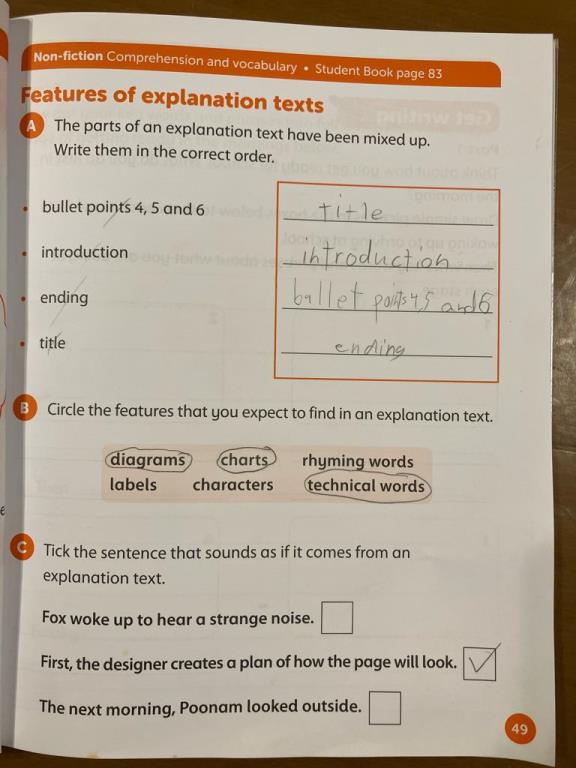 Non-fiction Comprehension and vocabulary • Student Book page 83
Features of explanation texts
A The parts of an explanation text have been mixed up.
Write them in the correct order.
• bullet points 4, 5 and 6
• introduction
• ending
• title
title
introduction
ballet points 4,5 and 6
ending
B Circle the features that you expect to find in an explanation text.
diagrams charts rhyming words
labels characters technical words
C Tick the sentence that sounds as if it comes from an
explanation text.
Fox woke up to hear a strange noise.
First, the designer creates a plan of how the page will look.
The next morning, Poonam looked outside.
49